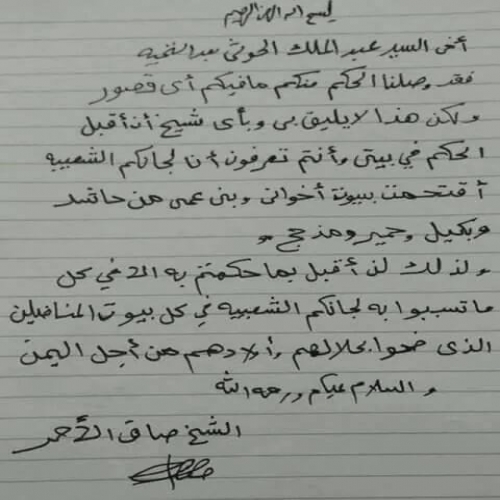 بسم الله الرحمن الرحيم
أخي السيد عبد الملك الحوثي بعد التحيه
فقد وصلنا الحكم منكم مافيكم أي قصور
ولكن هذا لايليق بي وبأي شيخ أن أقبل
الحكم في بيتي وأنتم تعرفون أن لجانكم الشعبيه
أقتحمت بيوت أخواني وبني عمي من حاشد
وبكيل وحمير ومذحج
ولذلك لن أقبل بما حكمتم به الا في كل
ماتسببوا به لجانكم الشعبيه في كل بيوت المناضلين
الذي ضحوا بحلالهم وأولادهم من أجل اليمن
والسلام عليكم ورحمة الله
الشيخ صادق الأحمر